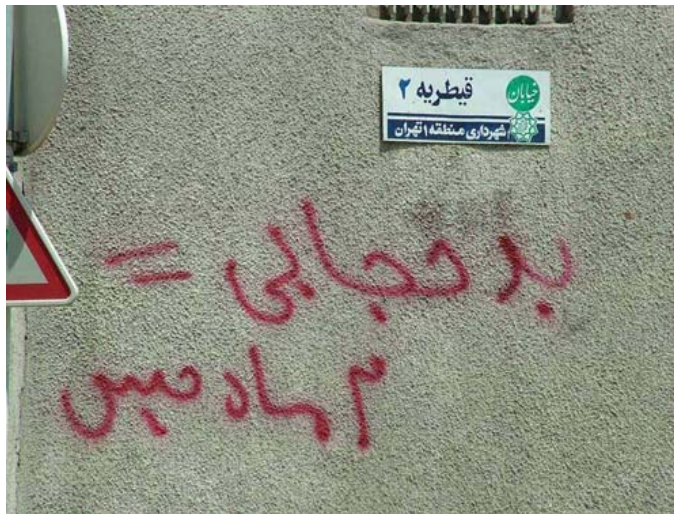 خیابان قیطریه ۲
شهرداری منطقه ۱ تهران
بد حجابی =
۳ ماه حبس